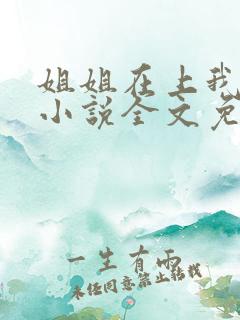 姐姐在上我
小说全文免
一生有雨
未经同意禁止转载